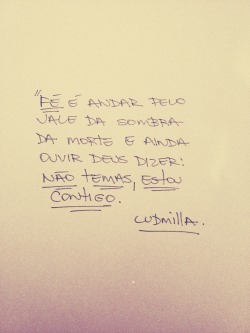 "FÉ É ANDAR PELO
VALE DA SOMBRA
DA MORTE E AINDA
OUVIR DEUS DIZER:
NÃO TEMAS, ESTOU
CONTIGO.
LUDMILLA.